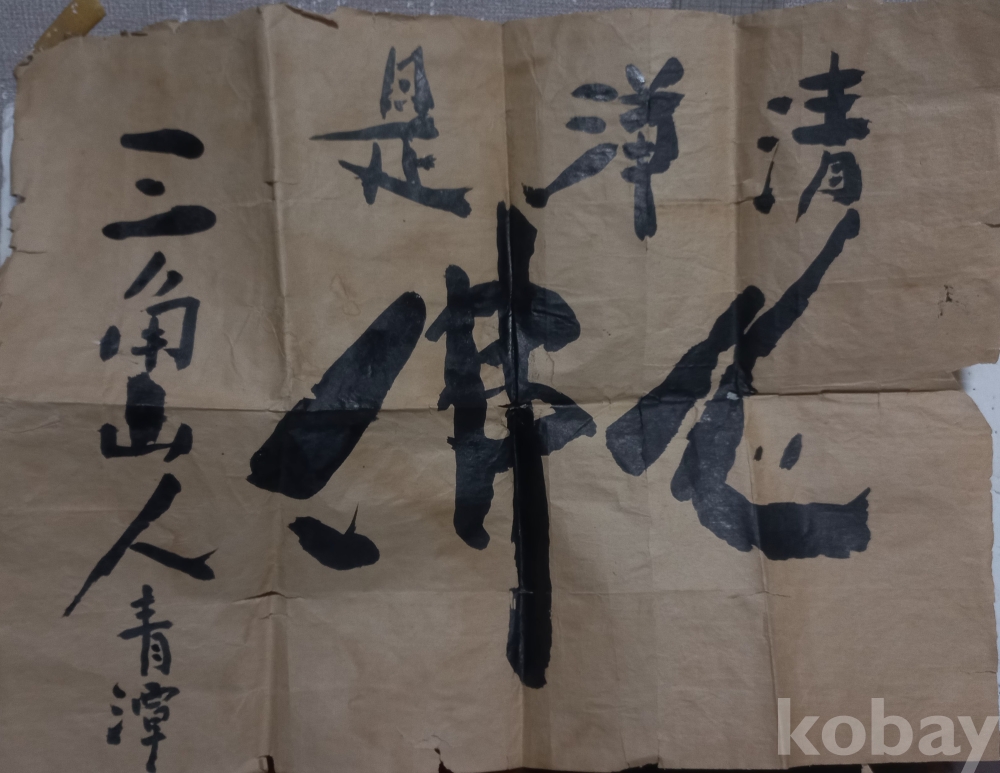 清淨是
心佛
三角山人 青潭
kobay